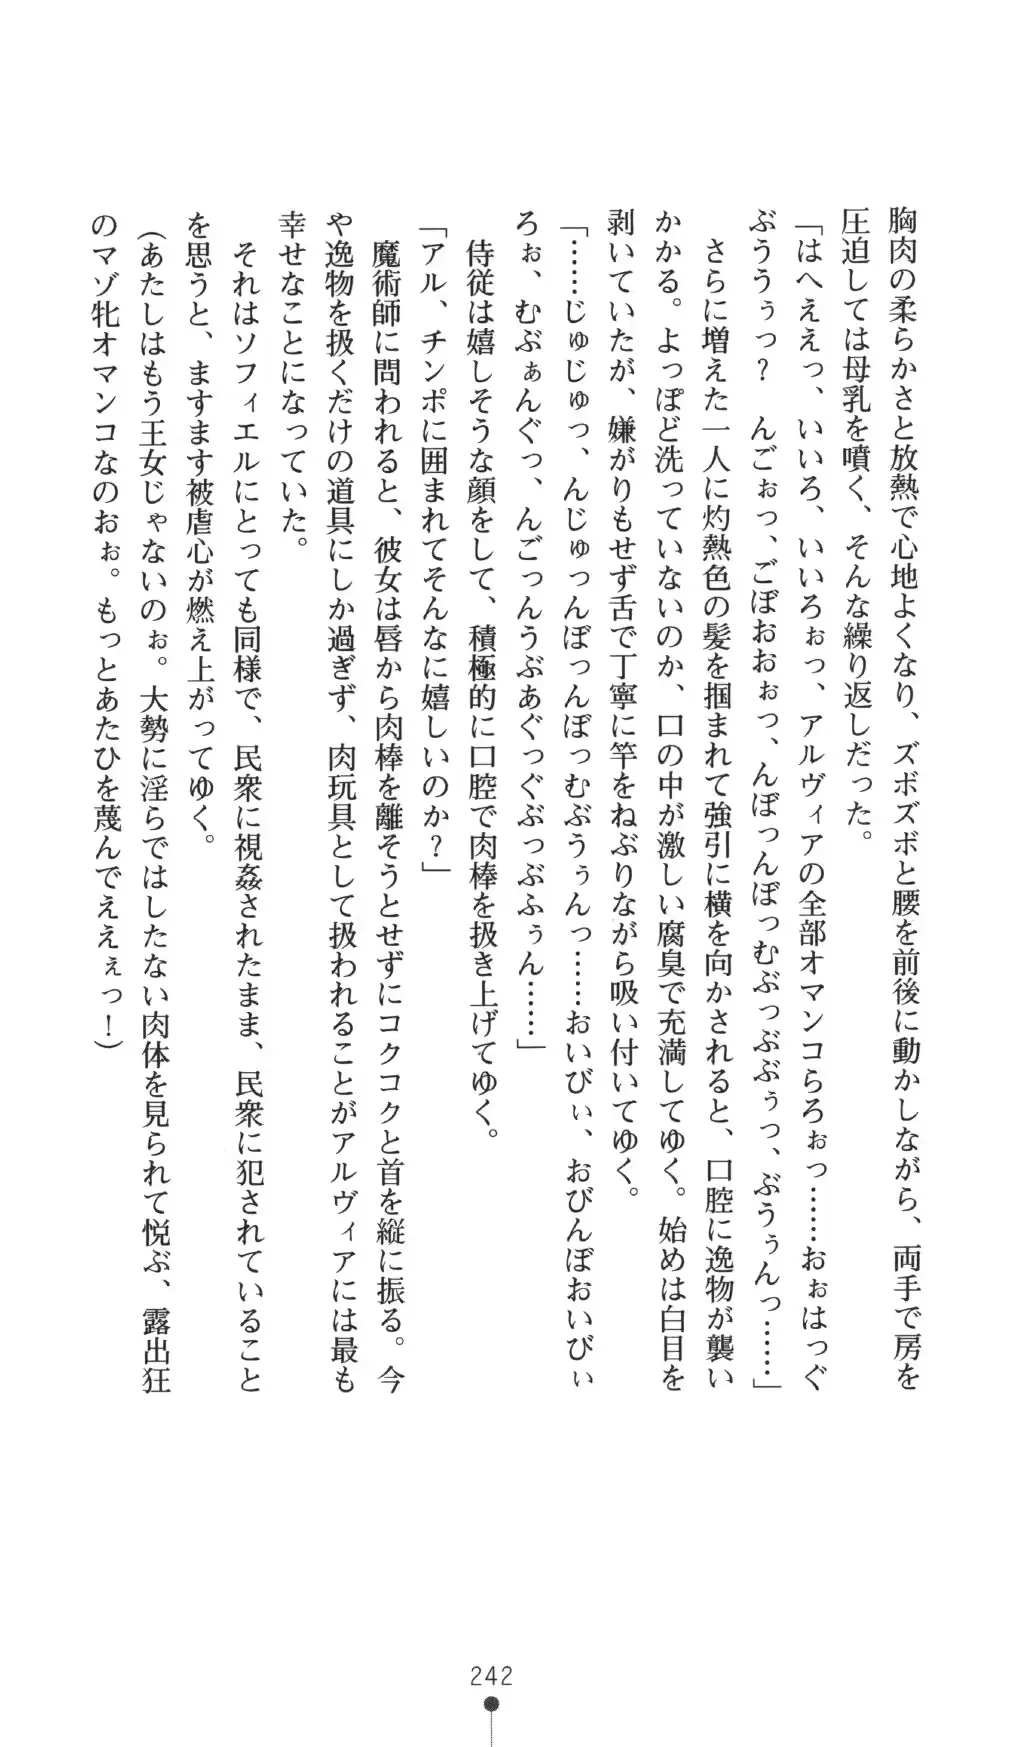 胸肉の柔らかさと放熱で心地よくなり、ズボズボと腰を前後に動かしながら、両手で房を
圧迫しては母乳を噴く、そんな繰り返しだった。
「はへええっ、いいろ、いいろぉっ、アルヴィアの全部オマンコらろぉっ……おぉはっぐ
ぶううぅっ？　んごぉっ、ごぼおおぉっ、んぼっんぼっむぶっぶぶぅっ、ぶうぅんっ……」
　さらに増えた一人に灼熱色の髪を掴まれて強引に横を向かされると、口腔に逸物が襲い
かかる。よっぽど洗っていないのか、口の中が激しい腐臭で充満してゆく。始めは白目を
剥いていたが、嫌がりもせず舌で丁寧に竿をねぶりながら吸い付いてゆく。
「……じゅじゅっ、んじゅっんぼっんぼっむぶうぅんっ……おいびぃ、おびんぼおいびぃ
ろぉ、むぶぁんぐっ、んごっんうぶあぐっぐぶっぶふぅん……」
　侍従は嬉しそうな顔をして、積極的に口腔で肉棒を扱き上げてゆく。
「アル、チンポに囲まれてそんなに嬉しいのか？」
　魔術師に問われると、彼女は唇から肉棒を離そうとせずにコクコクと首を縦に振る。今
や逸物を扱くだけの道具にしか過ぎず、肉玩具として扱われることがアルヴィアには最も
幸せなことになっていた。
　それはソフィエルにとっても同様で、民衆に視姦されたまま、民衆に犯されていること
を思うと、ますます被虐心が燃え上がってゆく。
（あたしはもう王女じゃないのぉ。大勢に淫らではしたない肉体を見られて悦ぶ、露出狂
のマゾ牝オマンコなのおぉ。もっとあたひを蔑んでええぇっ！）
242